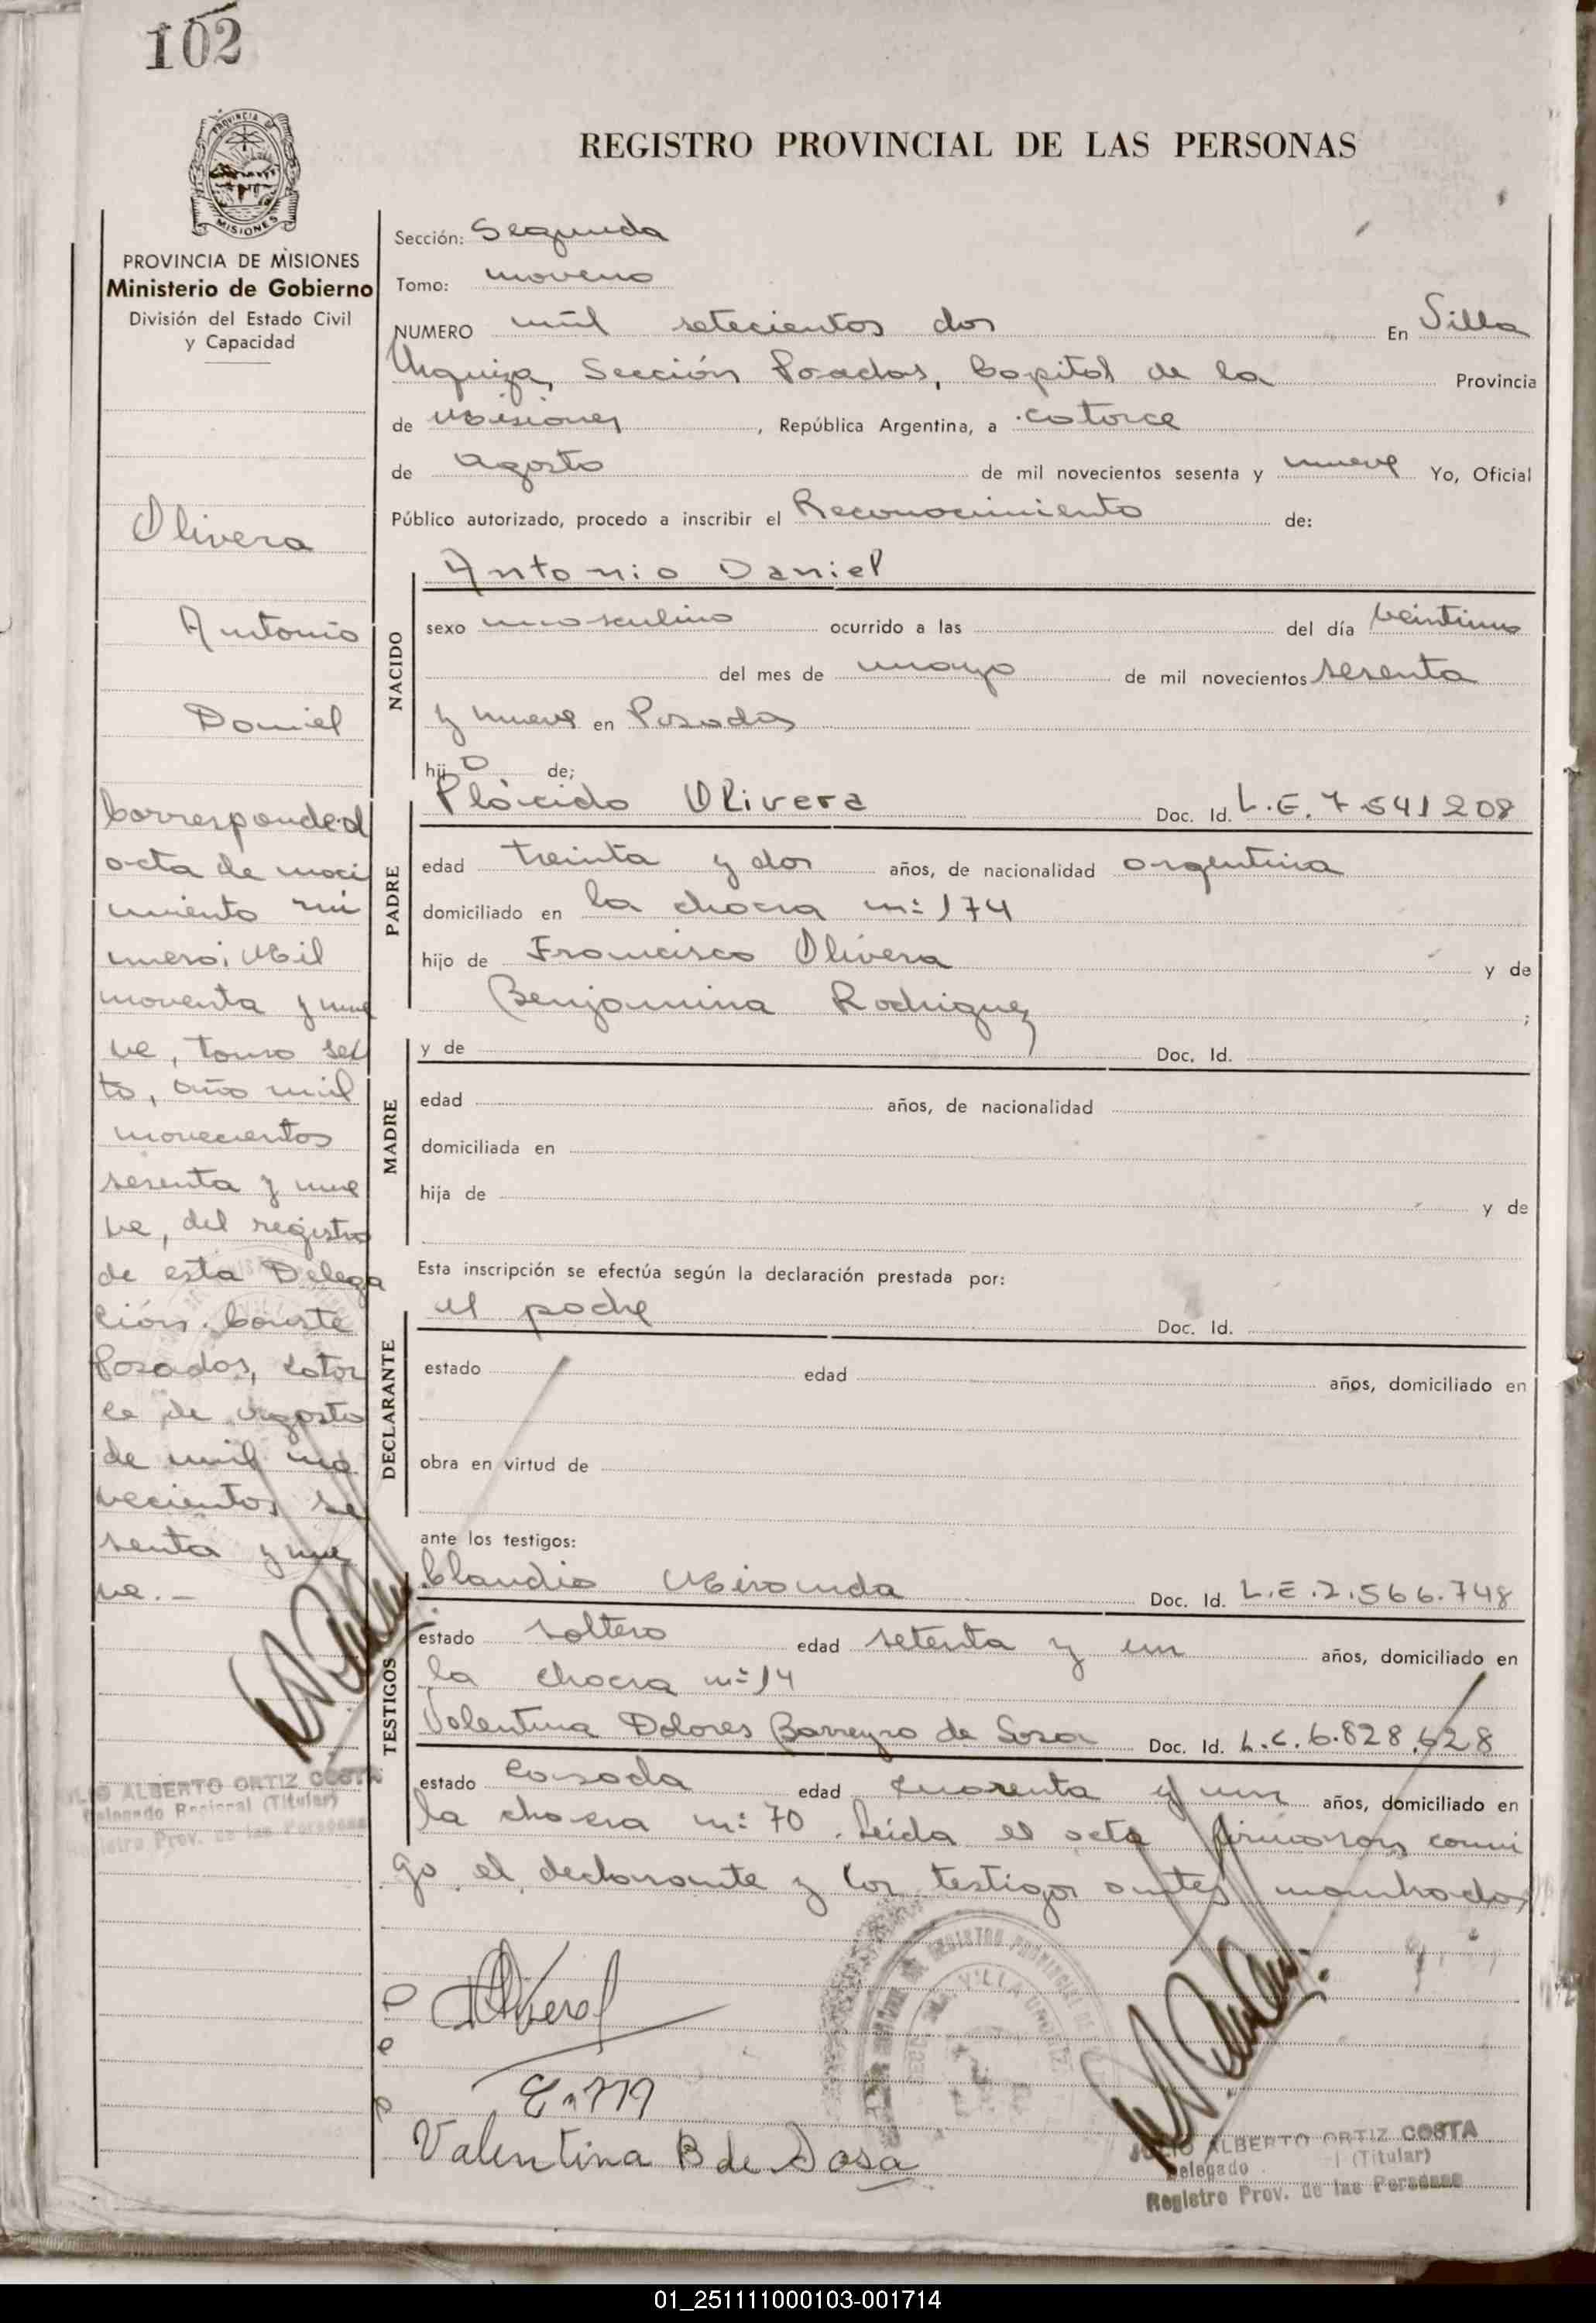 102
PROVINCIA DE
MISIONES
REGISTRO PROVINCIAL DE LAS PERSONAS
PROVINCIA DE MISIONES
Ministerio de Gobierno
División del Estado Civil
y Capacidad
Olivera
Antonio
Daniel
Corresponde al
acta de naci
miento nú
mero: Mil
noventa y nue
ve, tomo sex
to, año mil
novecientos
sesenta y nue
ve, del registro
de esta Delega
ción. Conste
Posadas, cator
ce de agosto
de mil no
vecientos se
senta y nue
ve.-
ALBERTO ORTIZ COSTA
Delegado Regional (Titular)
Registro Prov. de las Personas
Sección: Segunda
Tomo: noveno
NUMERO mil setecientos dos En Villa
Urquiza, Sección Posadas, Capital de la Provincia
de Misiones, República Argentina, a catorce
de agosto de mil novecientos sesenta y nueve Yo, Oficial
Público autorizado, procedo a inscribir el Reconocimiento de:
NACIDO
Antonio Daniel
sexo masculino ocurrido a las del día veintiuno
del mes de mayo de mil novecientos sesenta
y nueve en Posadas
hijo de;
PADRE
Plácido Olivera Doc. Id. L.E. 7.541208
edad treinta y dos años, de nacionalidad argentina
domiciliado en la chacra nº 174
hijo de Francisco Olivera y de
Benjamina Rodriguez ;
MADRE
y de Doc. Id.
edad años, de nacionalidad
domiciliada en
hija de y de
Esta inscripción se efectúa según la declaración prestada por:
DECLARANTE
el padre Doc. Id.
estado edad años, domiciliado en
obra en virtud de
ante los testigos:
TESTIGOS
Claudio Miranda Doc. Id. L.E.2.566.748
estado soltero edad setenta y un años, domiciliado en
la chacra nº 14
Valentina Dolores Barreyro de Sosa Doc. Id. L.C. 6.828.628
estado casada edad cuarenta y un años, domiciliado en
la chacra nº 70. Leída el acta firmaron conmi
go el declarante y los testigos antes nombrados
Olivera
Valentina B de Sosa
REGISTRO PROVINCIAL DE
VILLA URQUIZA
JULIO ALBERTO ORTIZ COSTA
Delegado (Titular)
Registro Prov. de las Personas
01_251111000103-001714